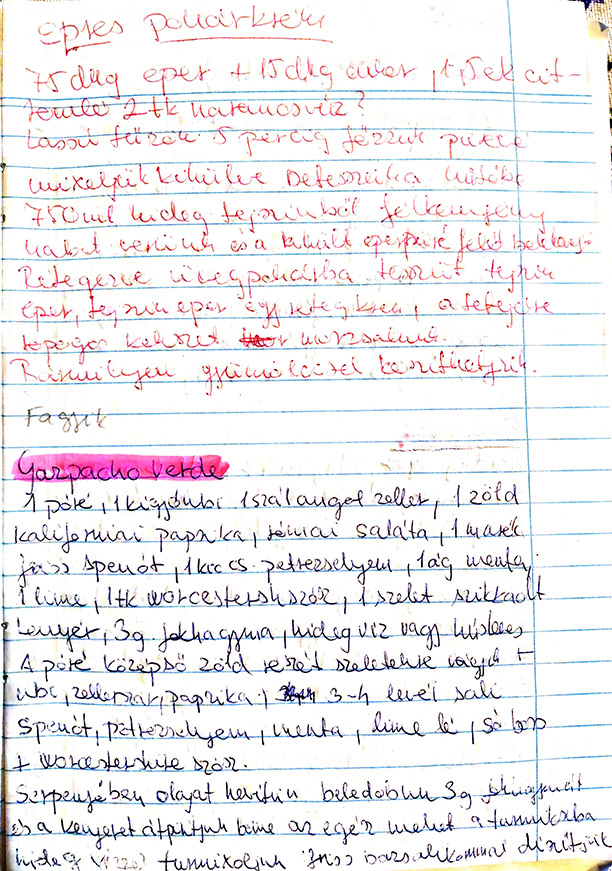 epres pohárkrém
75 dkg eper + 15 dkg cukor, 1,5 ek cit-
romlé 2 tk narancsvíz?
Lassú tűzön 5 percig főzzük püré
mixeljük kihűlve betesszük a hűtőbe
750 ml hideg tejszínből félkemény
habot verünk és a kihűlt eperpüré felét
Rétegezve üvegpohárba teszünk tejszín
eper, tejszín eper egy réteg krém, a tetejére
ropogós kekszet morzsolunk.
Bármilyen gyümölccsel készíthetjük.
Fagyik
Gazpacho verde
1 póré, 1 kígyóubi 1 szál angol zeller, 1 zöld
kaliforniai paprika, római saláta, 1 marék
friss spenót, 1 kiccs. petrezselyem, 1 ág menta,
1 lime, 1 tk worcestersh szósz, 1 szelet szikkadt
kenyér, 3 g fokhagyma, hideg víz vagy húsleves
A póré középső zöld részét szeletekre vágjuk +
ubi, zellerszár, paprika, 3-4 levél sali
spenót, petrezselyem, menta, lime lé, só bors
+ worcestershire szósz.
Serpenyőben olajat hevítün beledobun 3 g fokhagymát
és a kenyeret átpirítjuk bene az egész mehet a turmixba
hideg vízzel turmixoljuk friss bazsalikommal díszítjük